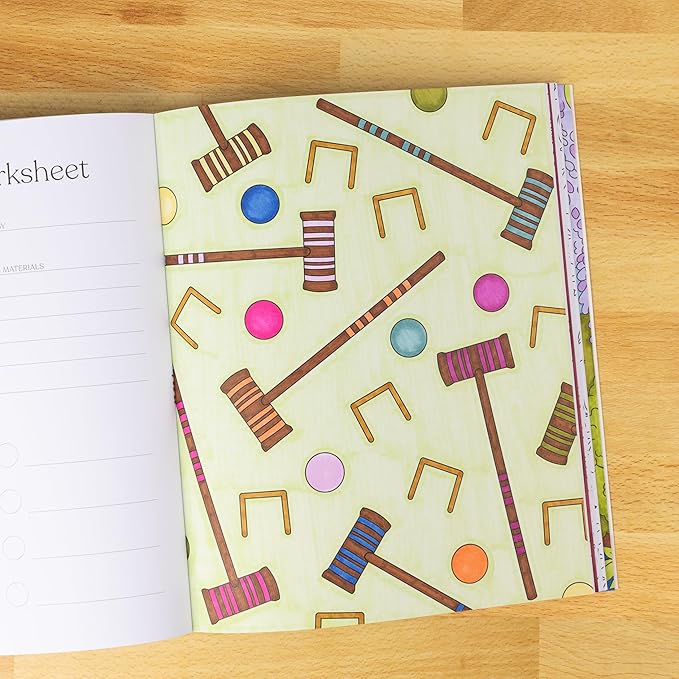 rksheet
MATERIALS